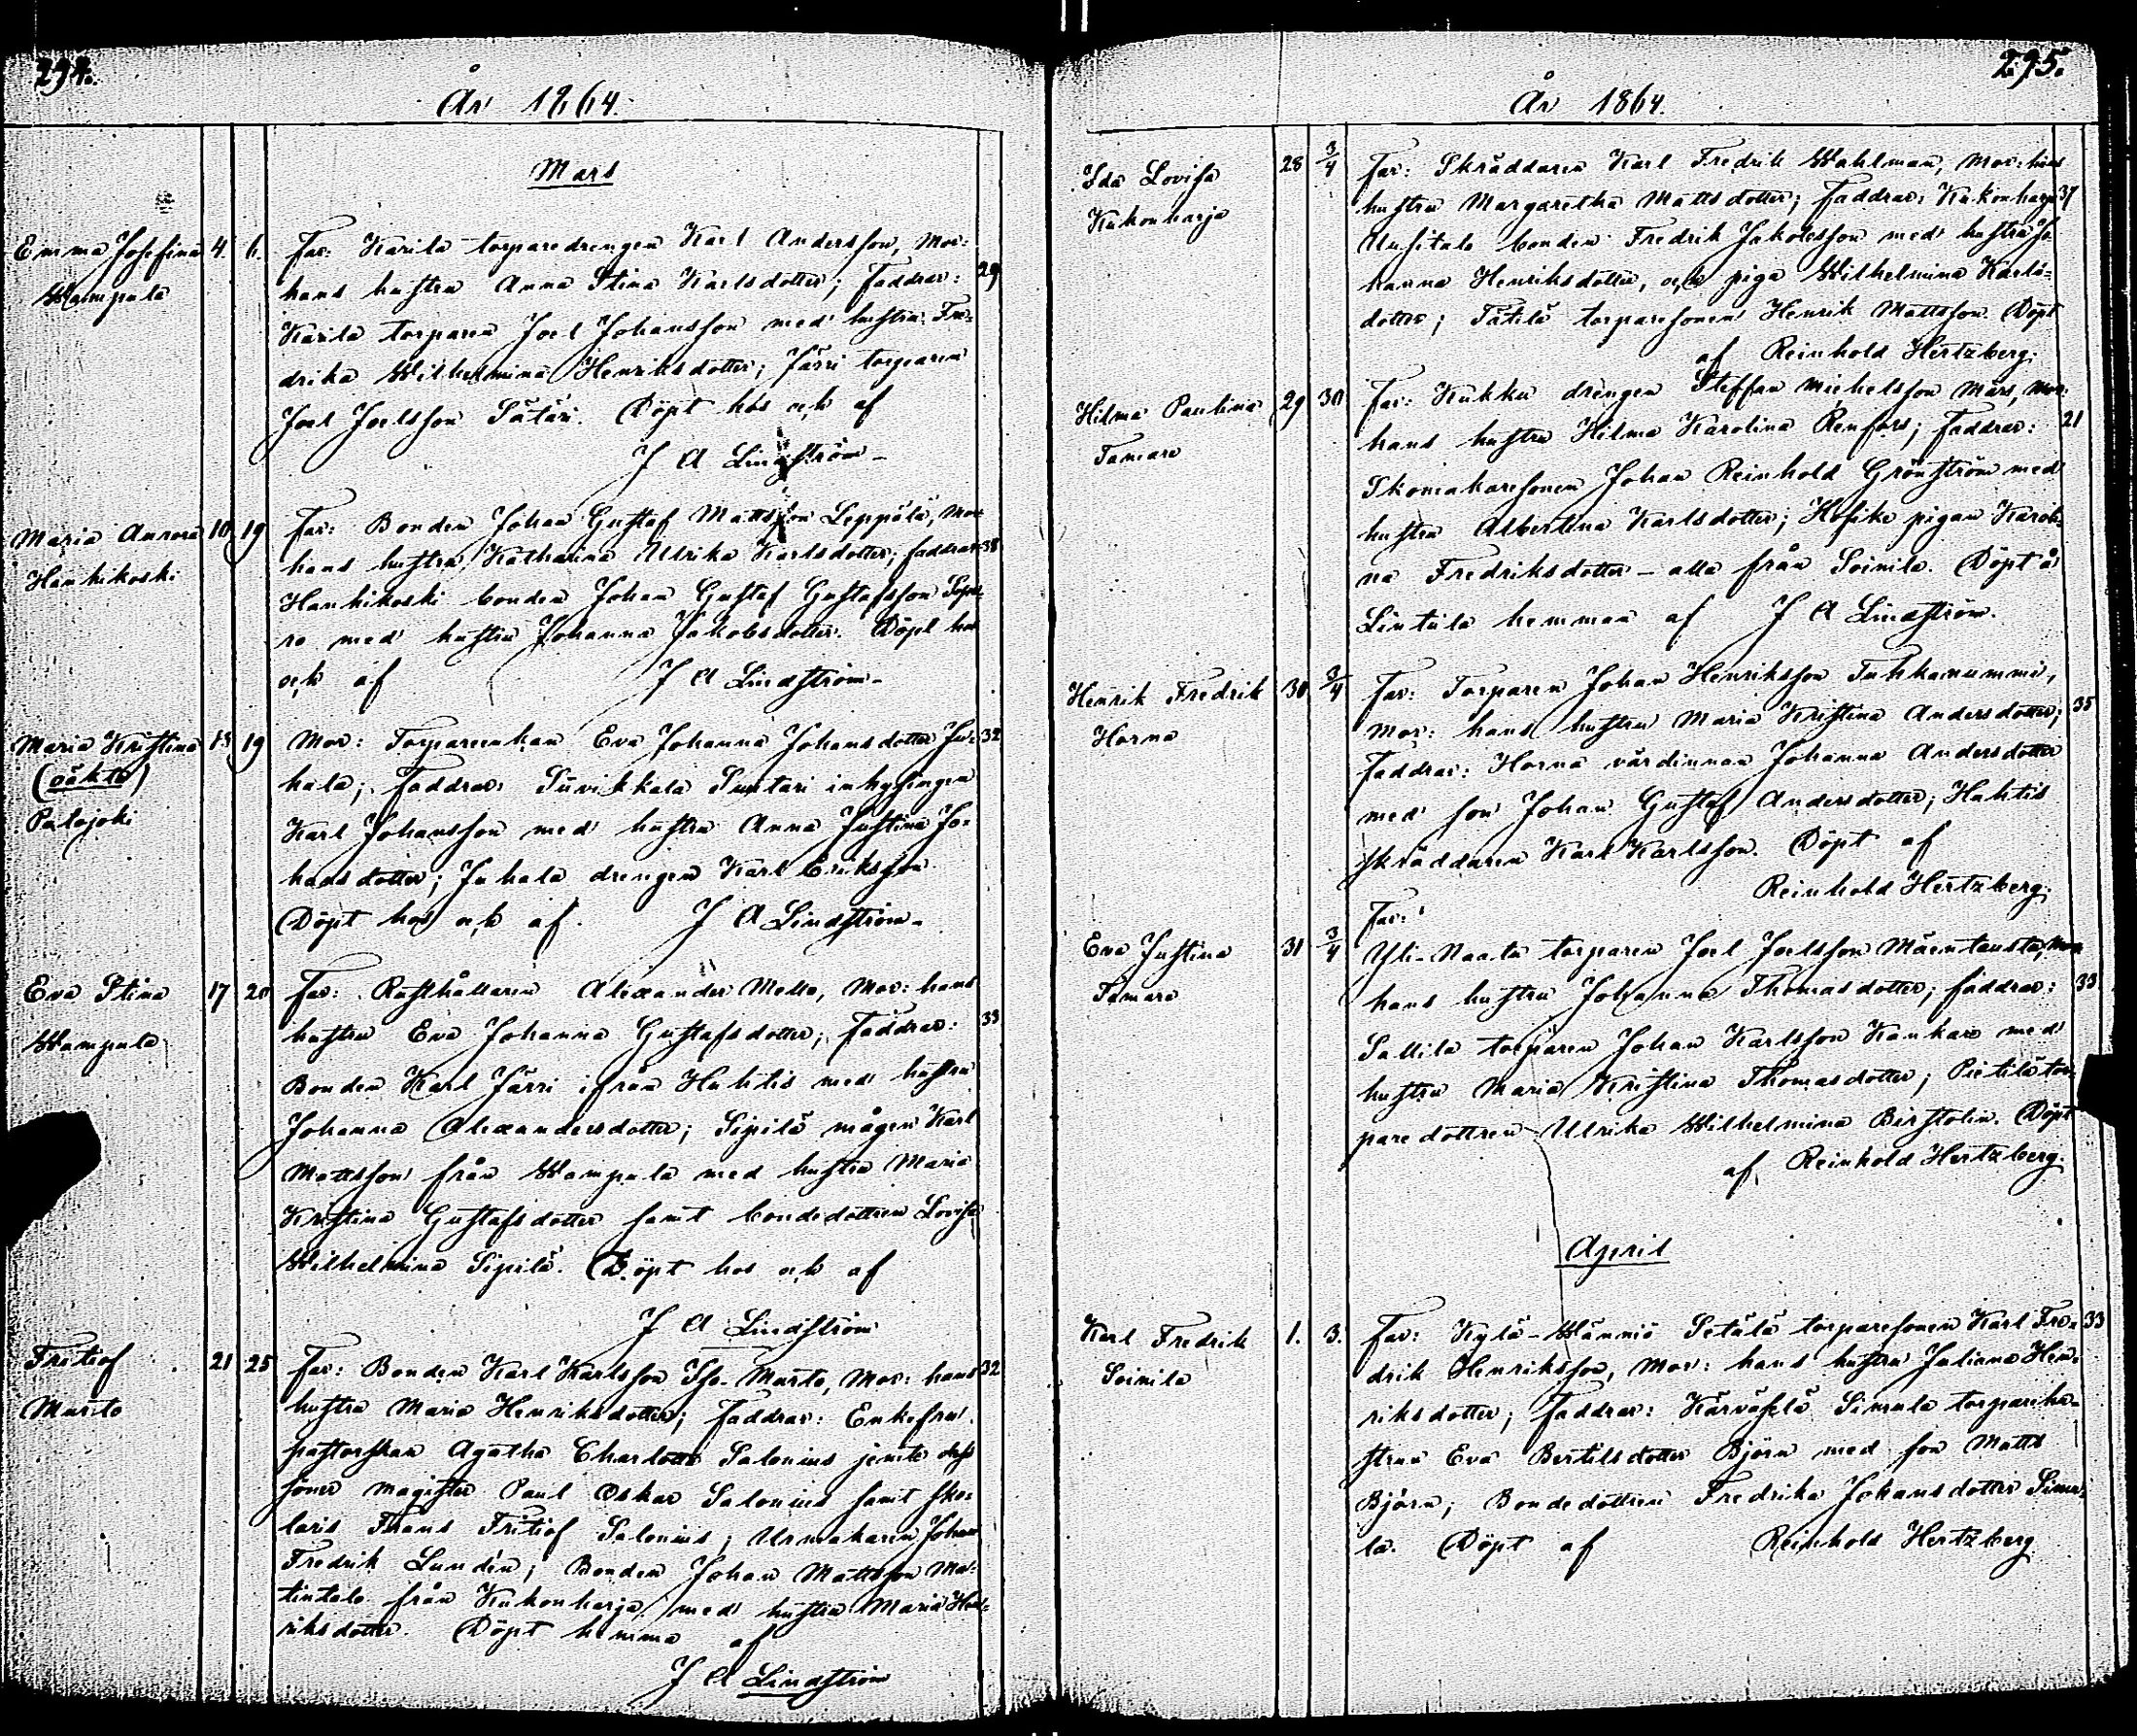 294.
År 1864.
Mars
Emma Josefina 4. 6. Far: Karila torparedrengen Karl Andersson, Mor:
Wampula hans hustru Anna Stina Karlsdotter; Faddrar: 29
Karila torparen Joel Johansson med hustru Fre-
drika Wilhelmina Henriksdotter; Järri torparen
Joel Joelsson Sätäri. Döpt hos och af
J A Lindström
Maria Aurora 10 19 Far: Bonden Johan Gustaf Mattsson Leppälä, Mor
Hanhikoski hans hustru Katharina Ulrika Karlsdotter; faddrar: 38
Hanhikoski bonden Johan Gustaf Gustafsson
ro med hustru Johanna Jakobsdotter. Döpt hos
och af J A Lindström
Maria Kristina 15 19 Mor: Torpareenkan Eva Johanna Johansdotter Ju- 32
(oäkta) hala; Faddrar: Suvikkala Suutari inhysingen
Palojoki Karl Johansson med hustru Anna Justina Jo-
hansdotter; Juhala drengen Karl Eriksson.
Döpt hos och af. J A Lindström
Eva Stina 17 20 Far: Rusthållaren Alexander Mello, Mor: hans
Wampula hustru Eva Johanna Gustafsdotter; Faddrar: 33
Bonden Karl Järri ifrån Huhtis med hustru
Johanna Alexandersdotter; Sipilä mågen Karl
Mattsson från Wampula med hustru Maria
Kristina Gustafsdotter samt bondedottren Lovisa
Wilhelmina Sipilä. Döpt hos och af
J A Lindström
Fritiof 21 25 Far: Bonden Karl Karlsson Iso-Murto, Mor: hans 32
Murto hustru Maria Henriksdotter; Faddrar: Enkefru
pastorskan Agatha Charlotta Salonius jemte dess
söner magister Paul Oskar Salonius samt sko-
laris Frans Fritiof Salonius; Urmakaren Johan
Fredrik Lundén; Bonden Johan Mattsson Ma-
tintalo från Kukonharja med hustru Maria Hen-
riksdotter. Döpt hemma af
J A Lindström
295.
År 1864.
Ida Lovisa 28 3/4 Far: Skräddaren Karl Fredrik Wahlman, Mor: hans
Kukonharja hustru Margaretha Mattsdotter; Faddrar: Kukonharja 37
Uusitalo bonden Fredrik Jakobsson med hustru Jo-
hanna Henriksdotter, och piga Wilhelmina Karls-
dotter; Tätilä torparesonen Henrik Mattsson. Döpt
af Reinhold Hertzberg.
Hilma Paulina 29 30 Far: Kukku drengen Steffan Michelsson Mars, Mor:
Tamare hans hustru Hilma Karolina Renfors; Faddrar: 21
Skomakaresonen Johan Reinhold Grönström med
hustru Albertina Karlsdotter; Hofike pigan Karoli-
na Fredriksdotter – alla från Soinila. Döpt å
Lintula hemman af J A Lindström.
Henrik Fredrik 30 3/4 Far: Torparen Johan Henriksson Tuhkanummi,
Horna Mor: hans hustru Maria Kristina Andersdotter; 35
Faddrar: Horna värdinnan Johanna Andersdotter
med son Johan Gustaf Andersdotter; Huhtis
skräddaren Karl Karlsson. Döpt af
Reinhold Hertzberg.
Far:
Eva Justina 31 3/4 Yli-Naatu torparen Joel Joelsson Mäentausta, Mor
Tamare hans hustru Johanna Thomasdotter; faddrar: 33
Sallila torparen Johan Karlsson Kankare med
hustru Maria Kristina Thomasdotter; Pietilä tor-
paredottren Ulrika Wilhelmina Birstolin. Döpt
af Reinhold Hertzberg.
April
Karl Fredrik 1. 3. Far: Kylä-Wänniö Setälä torparesonen Karl Fre- 33
Soinila drik Henriksson, Mor: hans hustru Juliana Hen-
riksdotter; Faddrar: Kärväselä Simula torparehu-
strun Eva Bertilsdotter Björn med son Matts
Björn; Bondedottren Fredrika Johansdotter Simu-
la. Döpt af Reinhold Hertzberg